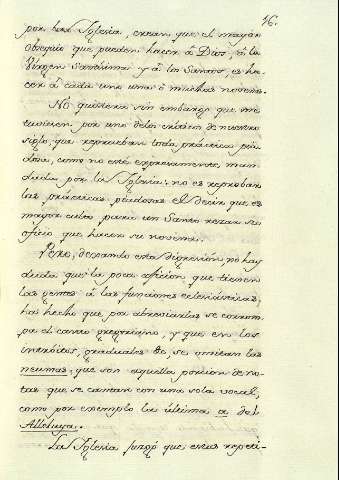 16.
por la Iglesia, crean que el mayor
obsequio que pueden hacer á Dios, á la
Virgen Santísima y á los Santos, es ha-
cer á cada uno una ó muchas novenas.
No quisiera sin embargo que me
tuviesen por uno de los críticos de nuestro
siglo, que reprueban toda práctica pia-
dosa, como no esté expresamente man-
dada por la Iglesia: no es reprobar
las prácticas piadosas el decir que es
mayor culto para un Santo rezar su
oficio que hacer su novena.
Pero, dexando esta digresión, no hay
duda que la poca afición que tienen
las gentes á las funciones eclesiásticas,
ha hecho que por abreviarlas se corrom-
pa el canto gregoriano, y que en los
intróitos, graduales &c se omitan las
neumas, que son aquella porción de no-
tas que se cantan con una sola vocal,
como por exemplo la última a del
Alleluya.
La Iglesia juzgó que estas repeti-